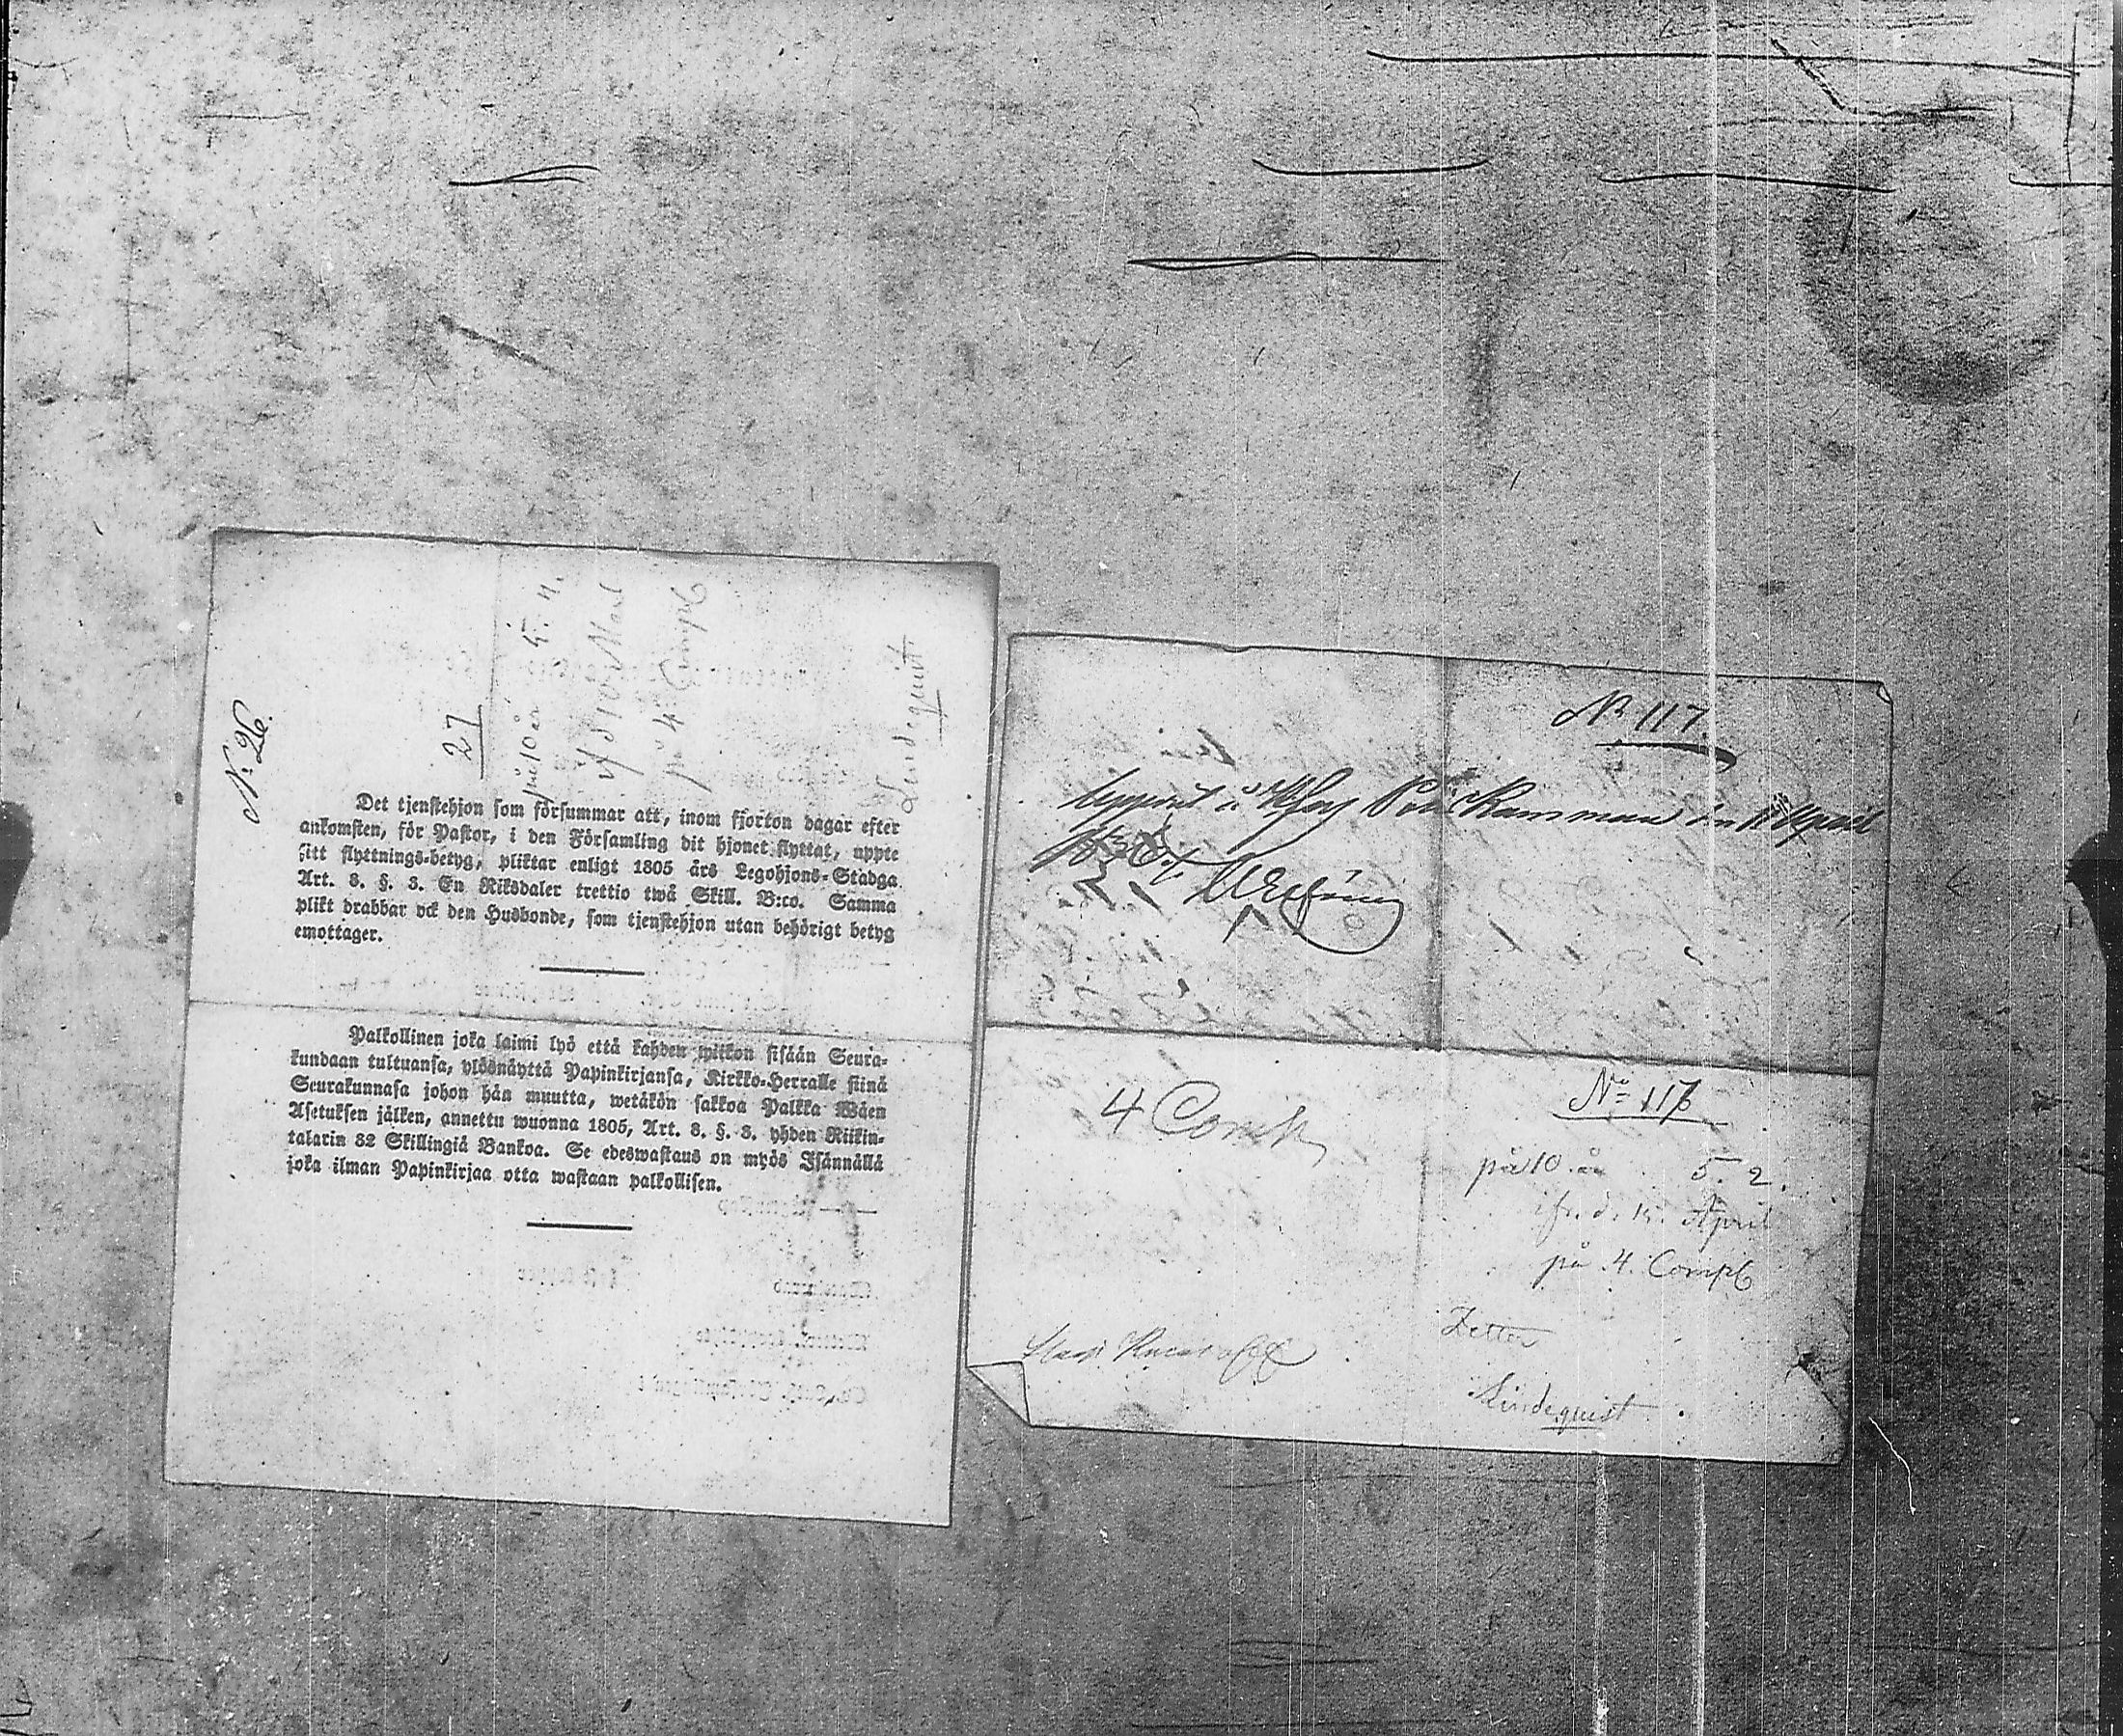 N:o 26.
27
på 10 år 5. 11.
på 4 Comp
Lindequist
Det tjenstehjon som försummar att, inom fjorton dagar efter
ankomsten, för Pastor, i den Församling dit hjonet flyttat, uppte
sitt flyttnings-betyg, pliktar enligt 1805 års Legohjons-Stadga
Art. 8. §. 3. En Riksdaler trettio twå Skill. B:co. Samma
plikt drabbar ock den Husbonde, som tjenstehjon utan behörigt betyg
emottager.
Palkollinen joka laimi lyö että kahden wiikon sisään Seura-
kundaan tultuansa, ylösnäyttä Papinkirjansa, Kirkko-Herralle siinä
Seurakunnasa johon hän muutta, wetäkön sakkoa Palkka Wäen
Asetuksen jälken, annettu wuonna 1805, Art. 8. §. 3. yhden Riikin-
talarin 32 Skillingiä Bankoa. Se edeswastaus on myös Isännällä
joka ilman Papinkirjaa otta wastaan palkollisen.
N:o 117.
4 Comp
N:o 117
på 10. år 5. 2.
ifr. d. 15. April
på 4. Comp
Zetter
Lindequist